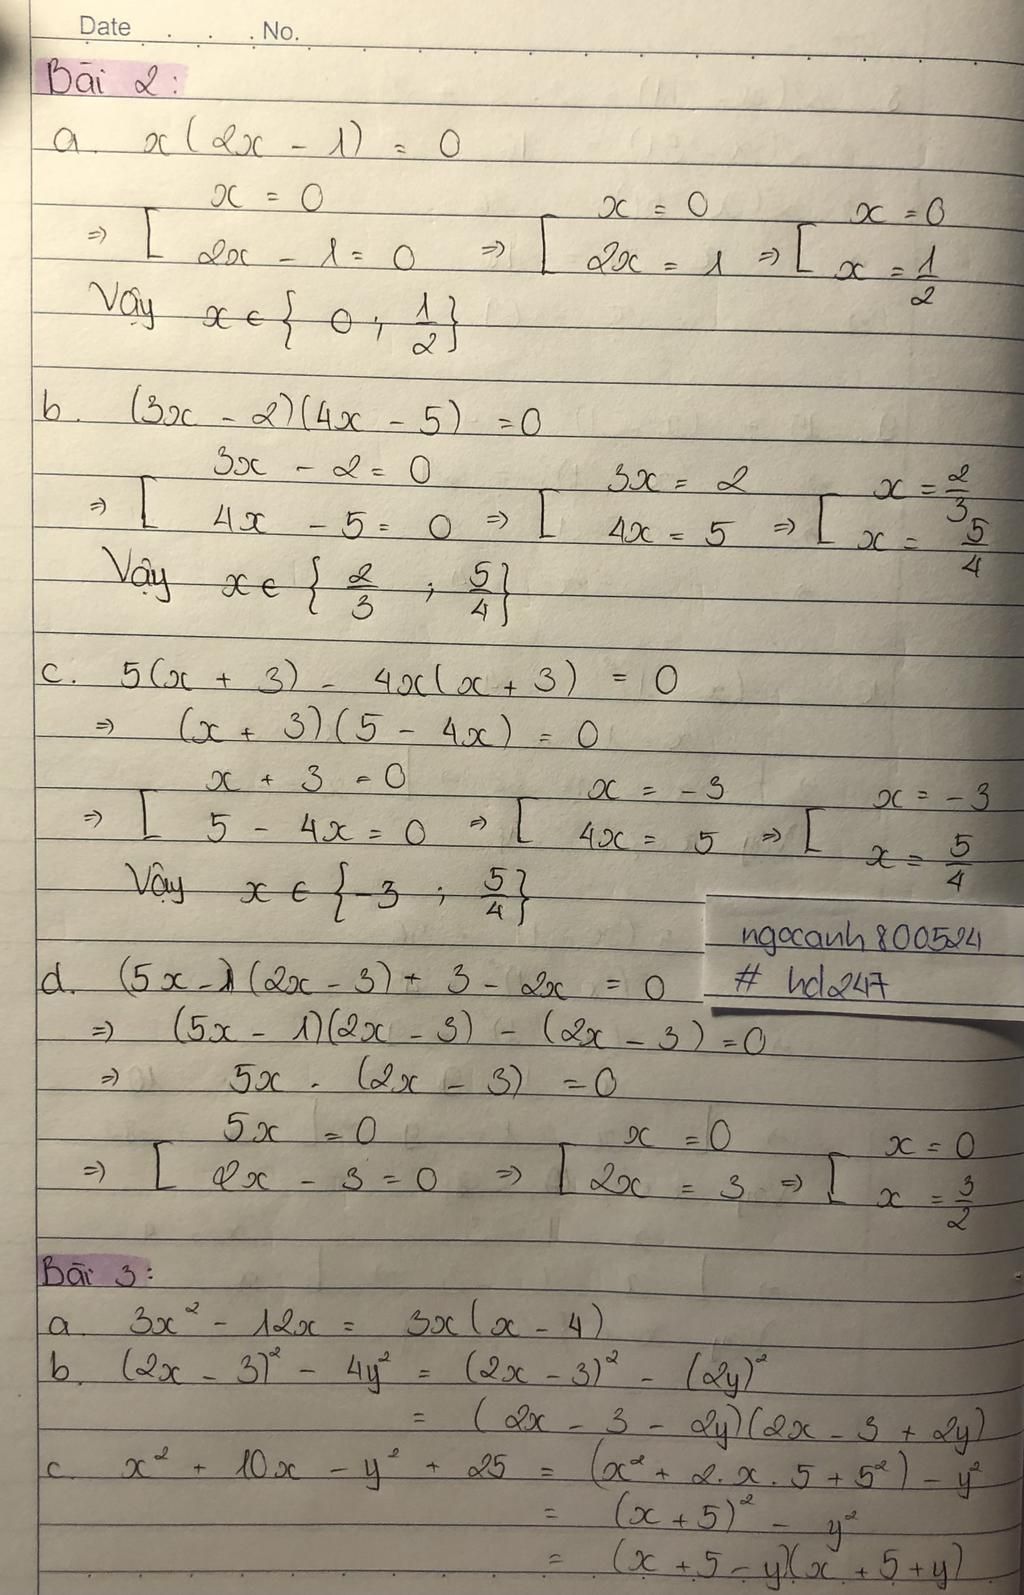 Date . . . . No.
Bài 2:
a. x(2x - 1) = 0
x = 0 x = 0 x = 0
=> [ 2x - 1 = 0 => [ 2x = 1 => [ x = 1/2
Vậy x ∈ { 0 ; 1/2 }
b. (3x - 2)(4x - 5) = 0
3x - 2 = 0 3x = 2 x = 2/3
=> [ 4x - 5 = 0 => [ 4x = 5 => [ x = 5/4
Vậy x ∈ { 2/3 ; 5/4 }
c. 5(x + 3) - 4x(x + 3) = 0
=> (x + 3)(5 - 4x) = 0
x + 3 = 0 x = -3 x = -3
=> [ 5 - 4x = 0 => [ 4x = 5 => [ x = 5/4
Vậy x ∈ { -3 ; 5/4 }
ngocanh800524
# hd247
d. (5x - 1)(2x - 3) + 3 - 2x = 0
=> (5x - 1)(2x - 3) - (2x - 3) = 0
=> 5x . (2x - 3) = 0
5x = 0 x = 0 x = 0
=> [ 2x - 3 = 0 => [ 2x = 3 => [ x = 3/2
Bài 3:
a. 3x² - 12x = 3x(x - 4)
b. (2x - 3)² - 4y² = (2x - 3)² - (2y)²
= (2x - 3 - 2y)(2x - 3 + 2y)
c. x² + 10x - y² + 25 = (x² + 2.x.5 + 5²) - y²
= (x + 5)² - y²
= (x + 5 - y)(x + 5 + y)